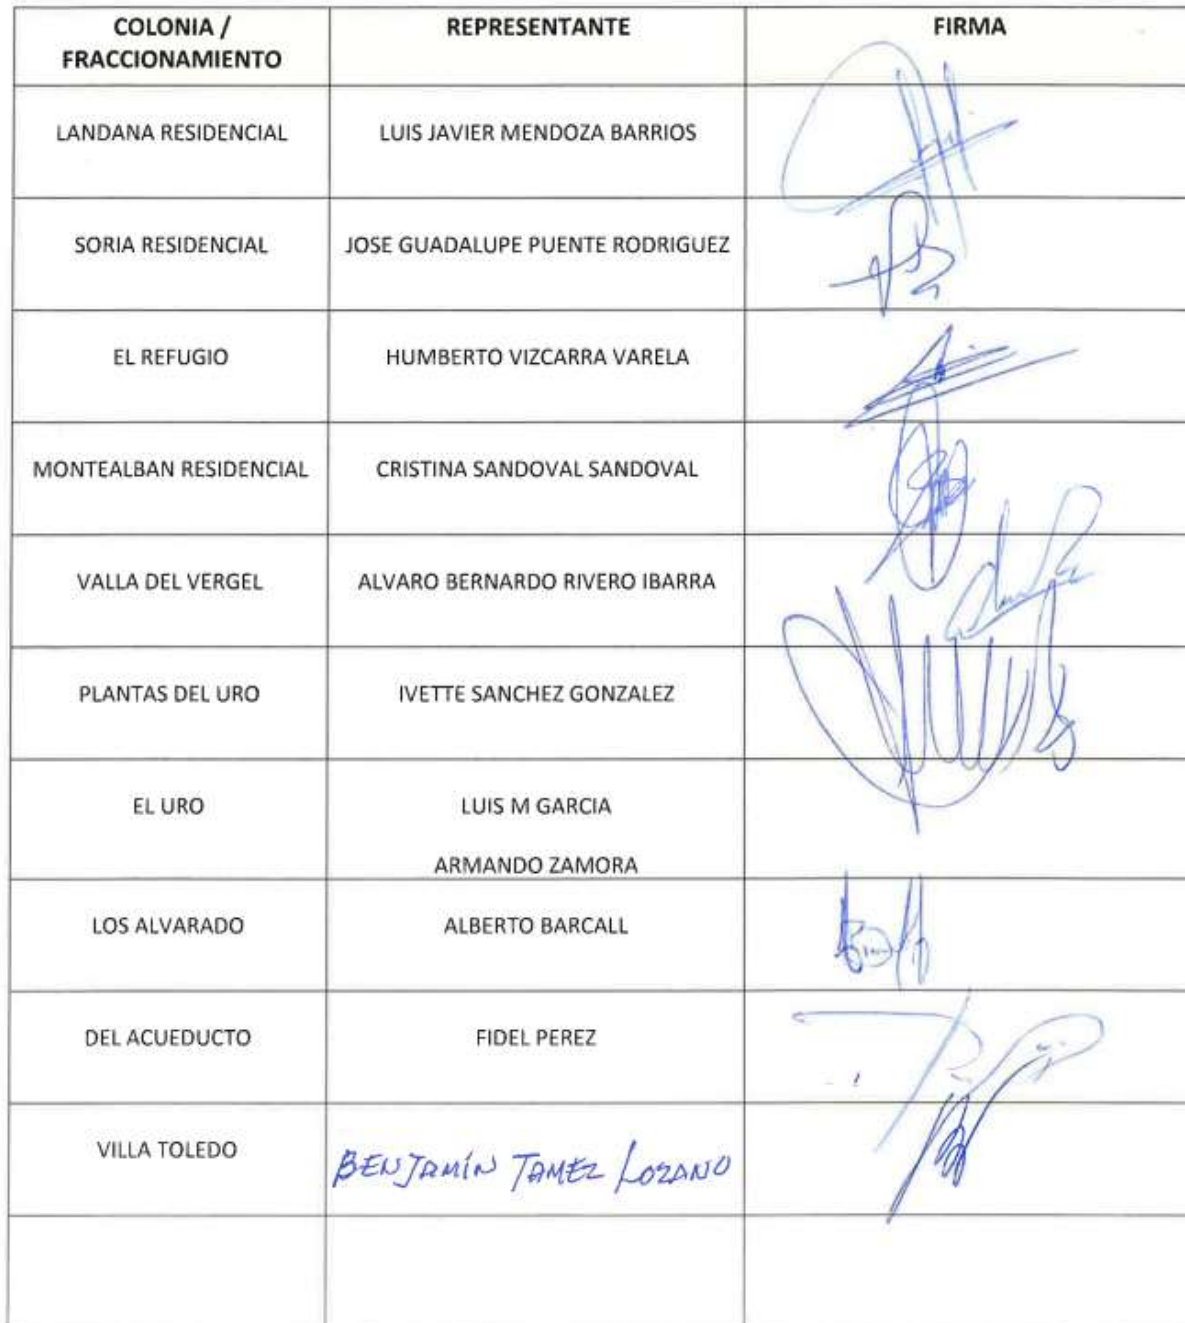 COLONIA / FRACCIONAMIENTO REPRESENTANTE FIRMA
LANDANA RESIDENCIAL LUIS JAVIER MENDOZA BARRIOS
SORIA RESIDENCIAL JOSE GUADALUPE PUENTE RODRIGUEZ
EL REFUGIO HUMBERTO VIZCARRA VARELA
MONTEALBAN RESIDENCIAL CRISTINA SANDOVAL SANDOVAL
VALLA DEL VERGEL ALVARO BERNARDO RIVERO IBARRA
PLANTAS DEL URO IVETTE SANCHEZ GONZALEZ
EL URO LUIS M GARCIA
ARMANDO ZAMORA
LOS ALVARADO ALBERTO BARCALL
DEL ACUEDUCTO FIDEL PEREZ
VILLA TOLEDO BENJAMÍN TAMEZ LOZANO